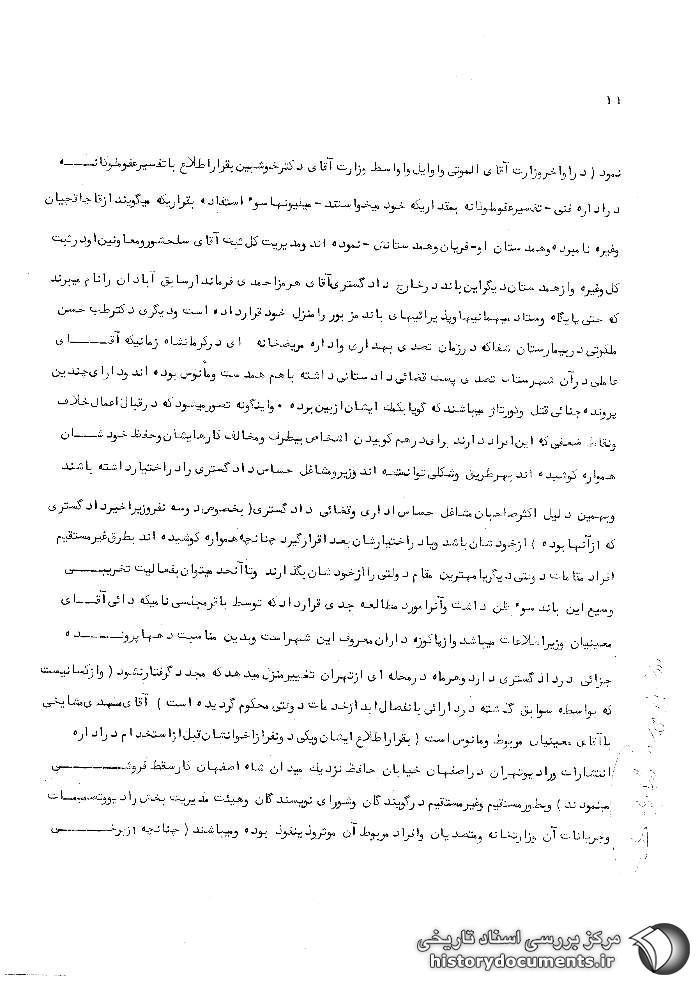 ۱۱
نمود ( در اواخر وزارت آقای الموتی و اوایل و اواسط وزارت آقای دکتر خوشبین بقرار اطلاع با تفسیر عفو ملوکانه
در اداره فنی - تفسیر عفو ملوکانه بمقداریکه خود میخواستند - میلیونها سوء استفاده بقراریکه میگویند از قاچاقچیان
وغیره نامبرده و همدستان او - قربان و همدستانش - نموده اند و مدیریت کل ثبت آقای سلحشور و معاونین او در ثبت
کل وغیره و از همدستان دیگر این باند در خارج دادگستری آقای هرمز احمدی فرماندار سابق آبادان را نام میبرند
که حتی پایگاه و ستاد میهمانیها و پذیرائیهای باند مزبور را منزل خود قرار داده است و دیگری دکتر طب حسن
ملکوتی در بیمارستان شفا که در زمان تصدی بهداری و اداره مریضخانه ای در کرمانشاه زمانیکه آقای
عاملی در آن شهرستان تصدی پست قضائی دادستانی داشته با هم همدست و مأنوس بوده اند و دارای چندین
پرونده جنائی قتل و کورتاژ میباشند که گویا بکمك ایشان از بین برده ۰ و اینگونه تصور میشود که در قبال اعمال خلاف
ونقاط ضعفی که این افراد دارند برای درهم کوبیدن اشخاص بیطرف و مخالف کارهایشان و حفظ خودشان
همواره کوشیده اند بهر طریق و شکلی توانسته اند وزیر و مشاغل حساس دادگستری را در اختیار داشته باشند
وبهمین دلیل اکثر صاحبان مشاغل حساس اداری و قضائی دادگستری ( بخصوص دو سه نفر وزیر اخیر دادگستری
که از آنها بوده ) از خودشان باشد ویا در اختیارشان بعدا قرار گیرد چنانچه همواره کوشیده اند بطرق غیر مستقیم
افراد مقامات دولتی دیگر یا مهمترین مقام دولتی را از خودشان بگذارند وتا آنحد میتوان بفعالیت تخریبی
وسیع این باند سوء ظن داشت وآنرا مورد مطالعه جدی قرار داد که توسط باقر مجلسی نامیکه دائی آقای
معینیان وزیر اطلاعات میباشد و از پاکوزه داران معروف این شهر است و بدین مناسبت دهها پرونده
جزائی در دادگستری دارد و هر ماه در محله ای از تهران تغییر منزل میدهد که مجدد گرفتار نشود ( و از کسانیست
که بواسطه سوابق گذشته در دارائی بانفصال ابد از خدمات دولتی محکوم گردیده است ) آقای مهدی مشایخی
با آقای معینیان مربوط و مانوس است ( بقرار اطلاع ایشان و یکی دو نفر از اخوانشان قبل از استخدام در اداره
انتشارات و رادیو تهران در اصفهان خیابان حافظ نزدیك میدان شاه اصفهان کار سقط فروشی
مینمودند ) وبطور مستقیم وغیر مستقیم در گویندگان و شورای نویسندگان وهیئت مدیریت بخش رادیو و تصمیمات
وجریانات آن وزارتخانه و متصدیان وافراد مربوط آن موثر و ذینفوذ بوده ومیباشند ( چنانچه از برخی
مرکز بررسی اسناد تاریخی
historydocuments.ir